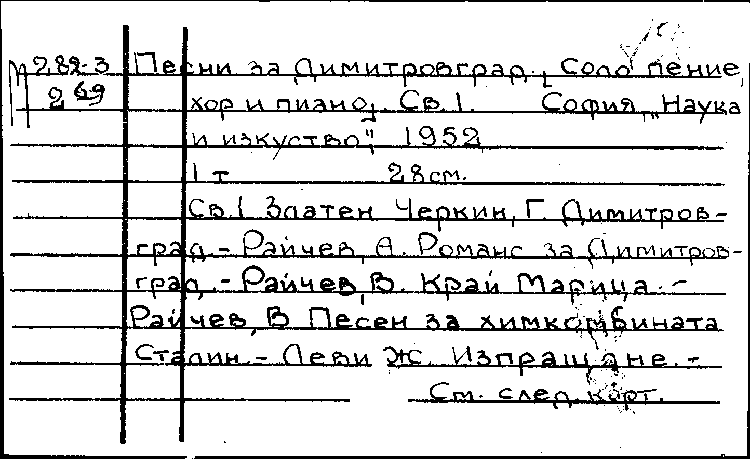 М 782-3 Песни за Димитровград. [Соло пение,
269 хор и пиано]. Св. 1. София, „Наука
и изкуство", 1952
1 т 28 см.
Св. 1 Златен Черкин, Г. Димитров-
град. – Райчев, А. Романс за Димитров-
град. – Райчев, В. Край Марица. –
Райчев, В Песен за химкомбината
Сталин. – Леви Ж. Изпращане. –
См. след. карт.